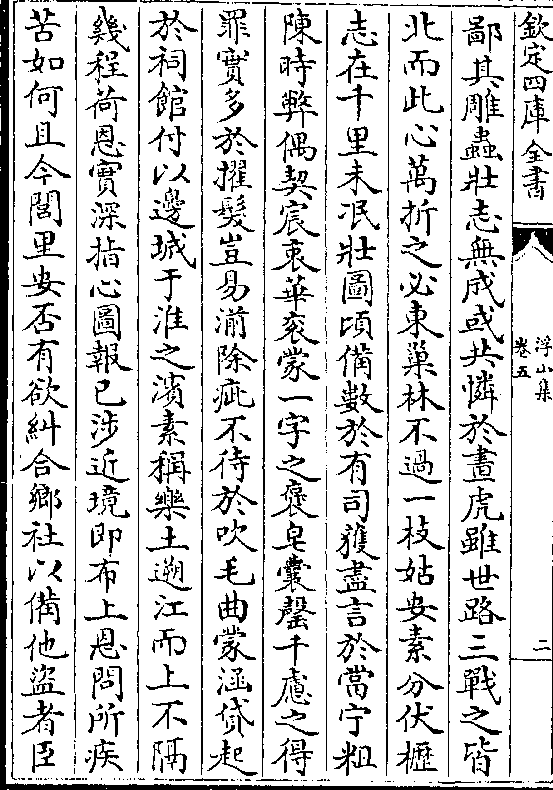 欽定四庫全書
浮山集
卷五
二
鄙其雕蟲壯志無成或共憐於畫虎雖世路三戰之皆
北而此心萬折之必東巢林不過一枝姑安素分伏櫪
志在千里未泯壯圖頃備數於有司獲盡言於當宁粗
陳時弊偶契宸衷華衮蒙一字之褒皂囊罄千慮之得
罪實多於擢髮豈易湔除疵不待於吹毛曲蒙涵貸起
於祠館付以邊城于淮之濱素稱樂土遡江而上不隔
幾程荷恩實深指心圖報已涉近境即布上恩問所疾
苦如何且今閭里安否有欲糾合鄉社以備他盜者臣